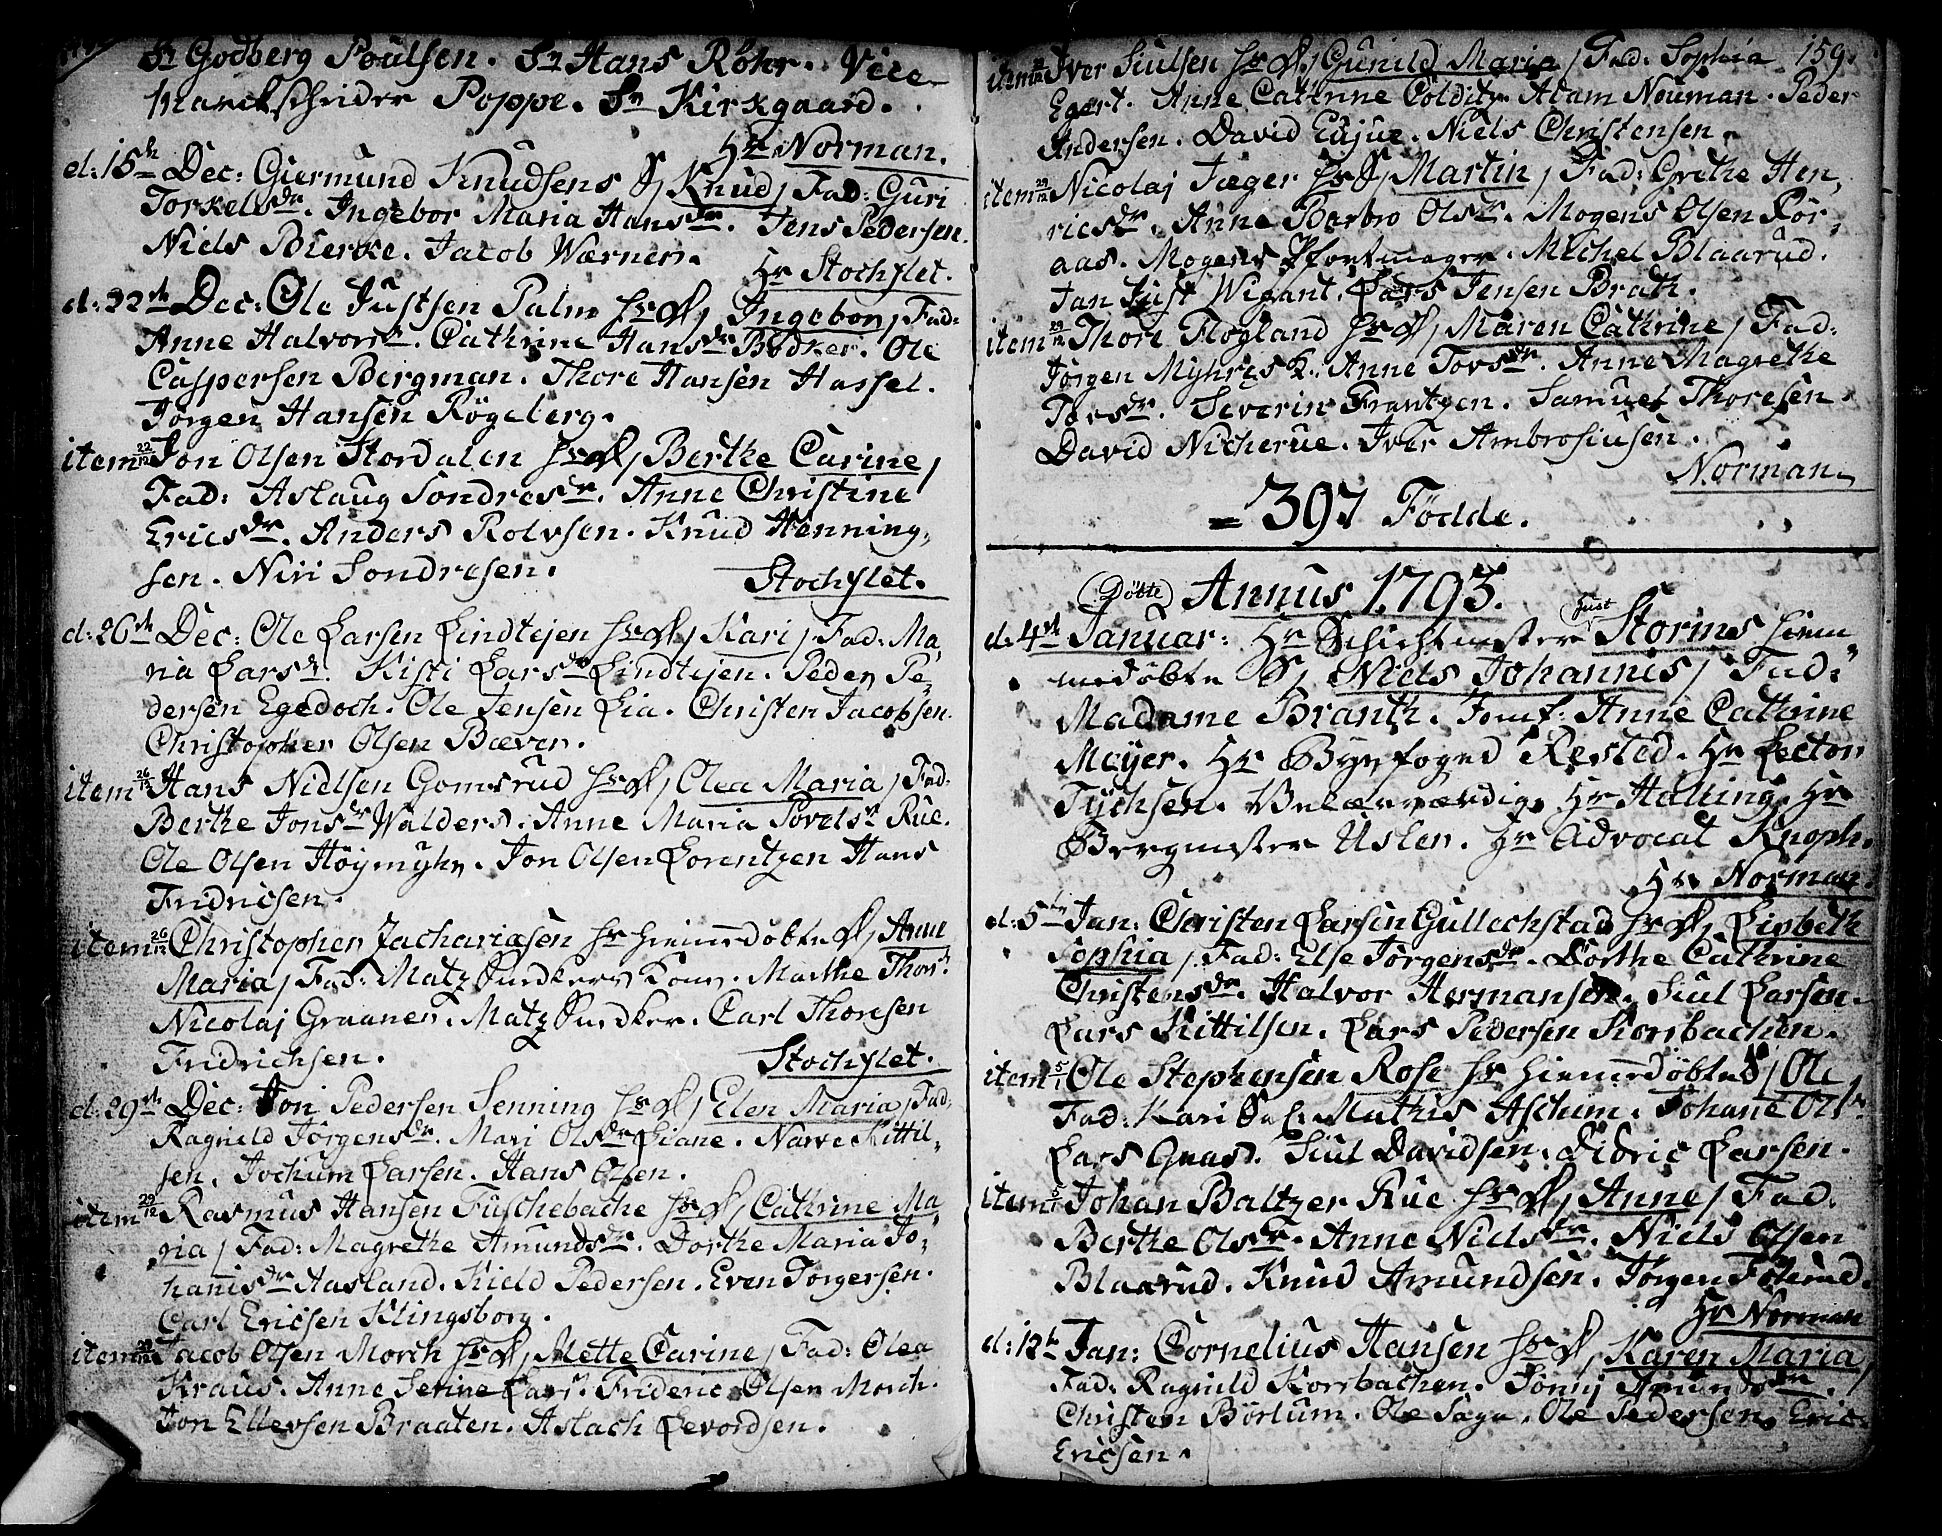 Sr Godberg Poulsen. Sr Hans Röhr. Vice
Marckscheider Poppe. Sr Kirkgaard.
Hr Norman.
d: 15de Dec: Giermund Knudsens S, Knud, Fad: Guri
Torkelsdr. Ingebor Maria Hansdr. Jens Pedersen.
Niels Bierke. Jacob Wærner.
Hr Stochflet.
d: 22de Dec: Ole Justsen Palm hs D, Ingebor, Fad:
Anne Halvorsdr. Cathrine Hansdr Bödker. Ole
Caspersen Bergman. Thore Hansen Hassel.
Jörgen Hansen Rögeberg.
item 22/12 Jon Olsen Stordalen hs D, Berthe Carine,
Fad: Aslaug Sondresdr. Anne Christine
Ericsdr. Anders Rolvsen. Knud Henning,
sen. Niri Sondresen.
Stochflet.
d: 26de Dec: Ole Larsen Lindtejen hs D, Kari, Fad: Ma,
ria Larsdr. Kisti Larsdr Lindtejen. Peder Pe,
dersen Egedoch. Ole Jensen Lia. Christen Jacobsen.
Christopher Olsen Bæver.
item 26/12 Hans Nielsen Gomsrud hs D, Olea Maria, Fad:
Berthe Jonsdr Walders. Anne Maria Povelsdr Rue.
Ole Olsen Höymyhr. Jon Olsen Lorentzen Hans
Fridricsen.
item 26/12 Christopher Zachariasen hs hiemmedöbte D, Anne
Maria, Fad: Matz Kone. Marthe Thorsdr
Nicolaj Graaner. Matz. Carl Thoresen
Fridrichsen.
Stochflet.
d: 29de Dec: Joni Pedersen Senning hs D, Elen Maria, Fad:
Ragnild Jörgensdr. Mari Olsdr Liane. Narve Kittil,
sen. Jochum Larsen. Hans Olsen.
item 29/12 Rasmus Hansen Fuschebache hs D, Cathrine Ma,
ria, Fad: Magrethe Amundsdr. Dorthe Maria Jo,
hanisdr Aasland. Kield Pedersen. Even Torgersen.
Carl Ericsen Klingsborg.
item 29/12 Jacob Olsen Morch hs D, Mette Carine, Fad: Olea
Kraus. Anne Serine Larsdr. Frideric Olsen Morch.
Jon Ellevsen Braaten. Aslach Levordsen.
159.
item Iver Siulsen hs D, Gunild Maria, Fad: Sophia
Egert. Anne Cathrine Colditz. Adam Nouman. Peder
Andersen. David Eujue. Niels Christensen.
item 29/12 Nicolaj Jæger hs S, Martin, Fad: Grethe Hen,
ricsdr. Anne Barbro Olsdr. Mogens Olsen Rör,
aas. Mogens. Michel Blaarud.
Jan Just Wigant. Lars Jensen Brath.
item 29/12 Thore Flogland hs D, Maren Cathrine, Fad:
Jörgen Myhres K. Anne Torsdr. Anne Magrethe
Torsdr. Severin Frantzen. Samuel Thoresen.
David Nicherue. Iver Ambrosiusen.
Norman.
= 397 Födde.
Döbte Annus 1793.
d: 4de Januar: Hr Schichtmester Just Storms hiem
medöbte S, Niels Johannis, Fad:
Madame Branth. Jomf: Anne Cathrine
Meyer. Hr Byefoged Rested. Hr Lector
Tychsen. Velærværdige Hr Halling. Hr
Bergmester Uslen. Hr Advocat Knoph.
Hr Norman.
d: 5te Jan: Christen Larsen Gullechstad hs D, Lisbeth
Sophia, Fad: Else Jörgensdr. Dorthe Cathrine
Christensdr. Halvor Hermansen. Siul Larsen.
Lars Kittilsen. Lars Pedersen Korsbachen.
item 5/1 Ole Stephensen Rose hs hiemmedöbte S, Ole,
Fad: Kari. Mathis Aschim. Johane Olsdr.
Lars Gaas. Siul Davidsen. Didric Larsen.
item 5/1 Johan Baltzer Rue hs D, Anne, Fad:
Berthe Olsdr. Anne Nielsdr. Niels Olsen
Blaarud. Knud Amundsen. Jörgen.
Hr Norman
d: 12te Jan: Cornelius Hansen hs D, Karen Maria,
Fad: Ragnild Korsbachen. Jonnj Amundsdr.
Christen Börlum. Ole Saga. Ole Pedersen. Eric
Ericsen.